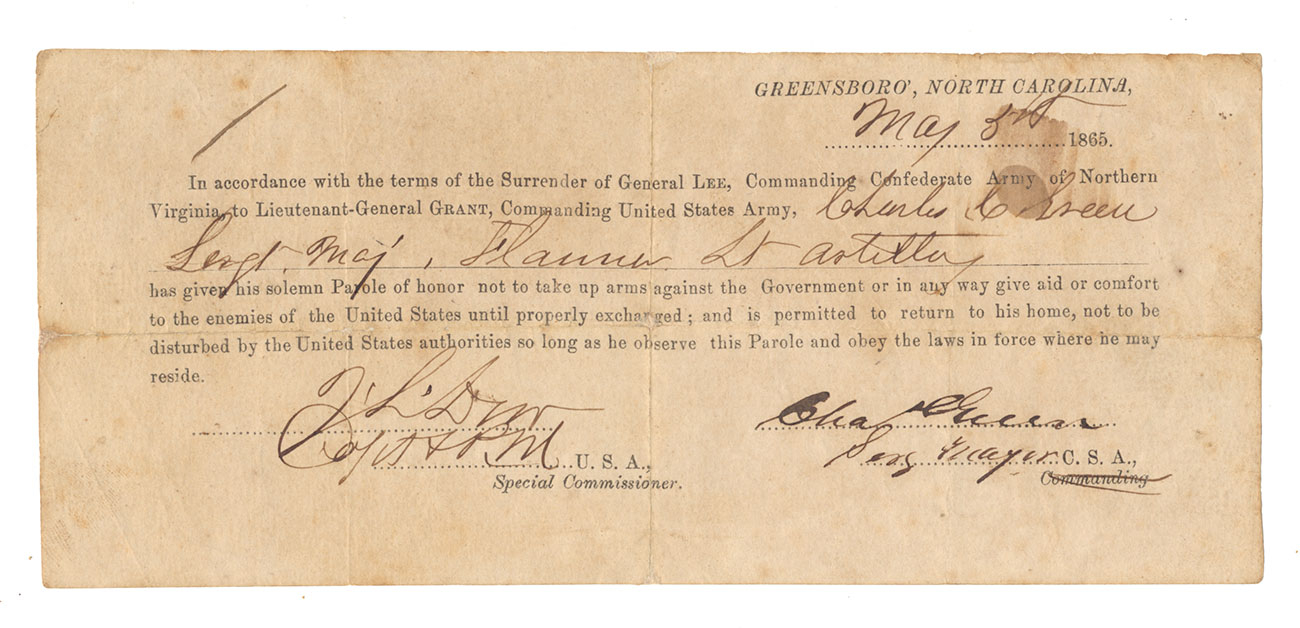 GREENSBORO', NORTH CAROLINA,
May 3rd 1865.
In accordance with the terms of the Surrender of General LEE, Commanding Confederate Army of Northern
Virginia, to Lieutenant-General GRANT, Commanding United States Army, Charles C Green
Sergt. Maj, Flanner Lt artillery
has given his solemn Parole of honor not to take up arms against the Government or in any way give aid or comfort
to the enemies of the United States until properly exchanged; and is permitted to return to his home, not to be
disturbed by the United States authorities so long as he observe this Parole and obey the laws in force where he may
reside.
Chas Green
Capt & P.M U. S. A.,
Serg Mayor C. S. A.,
Special Commissioner.
Commanding